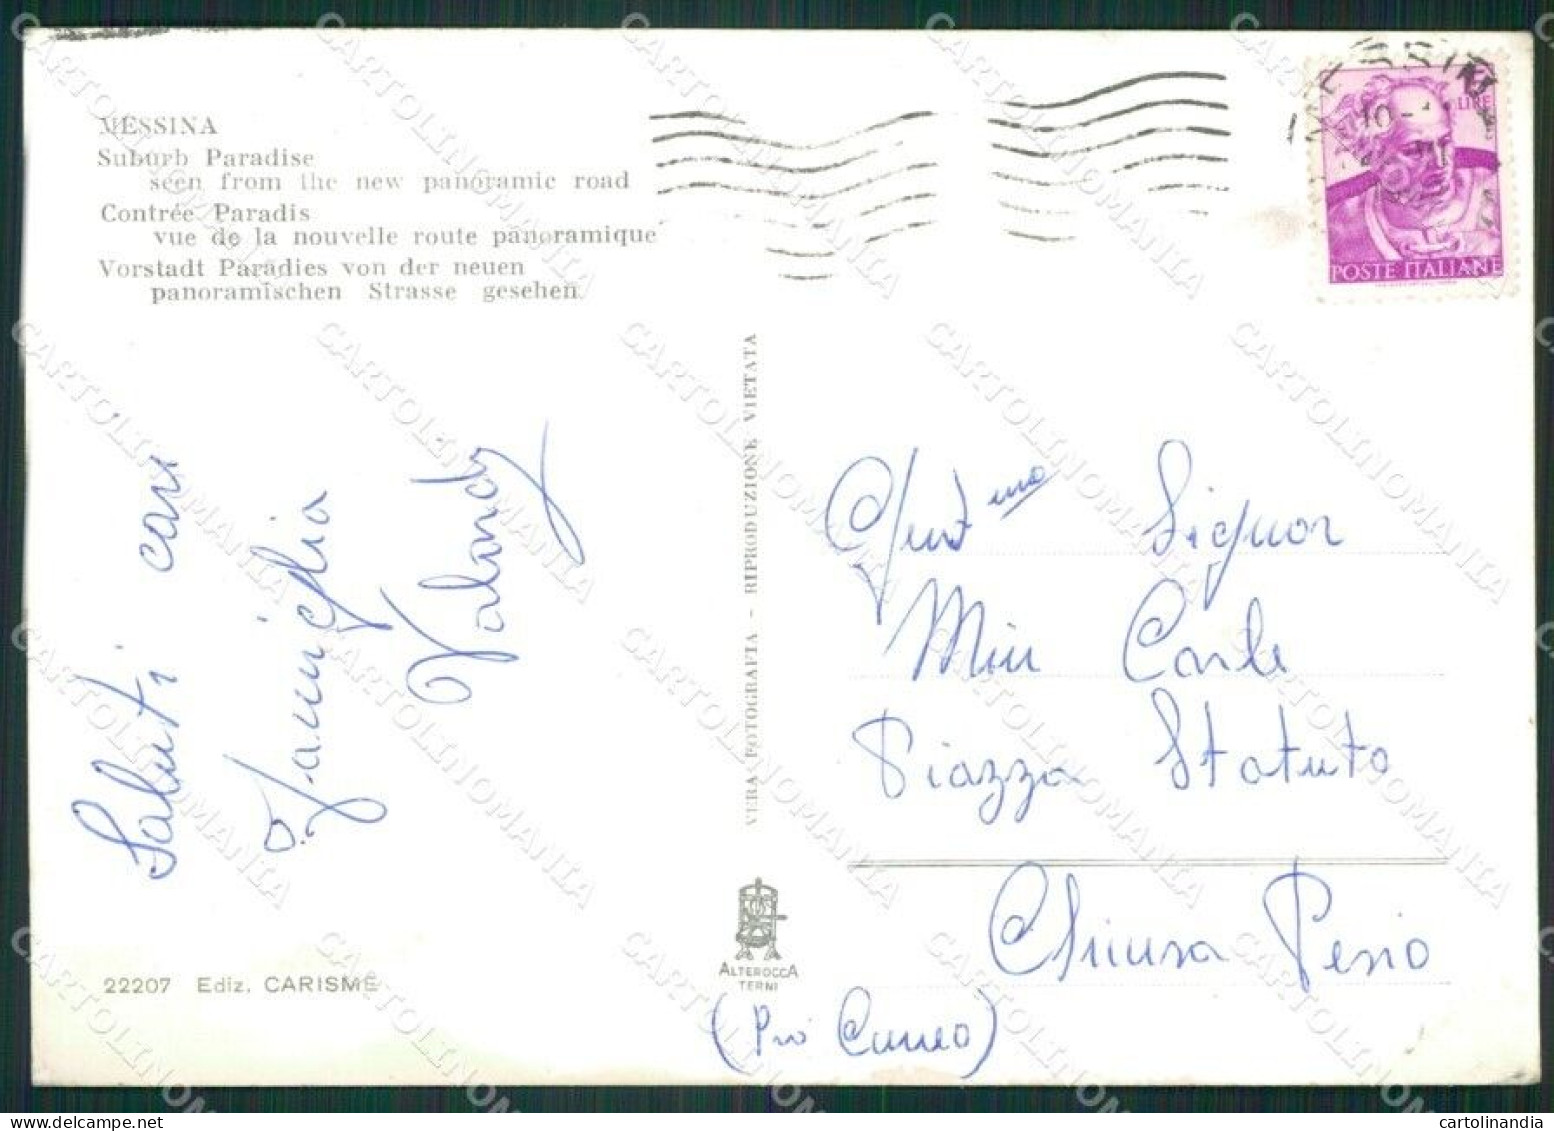 MESSINA
Suburb Paradise
seen from the new panoramic road
Contrée Paradis
vue de la nouvelle route panoramique
Vorstadt Paradies von der neuen
panoramischen Strasse gesehen
LIRE
POSTE ITALIANE
Saluti cari
Famiglia
VERA FOTOGRAFIA - RIPRODUZIONE VIETATA
Gent mo Signor
Carlo
Piazza Statuto
Chiusa Pesio
(Cuneo)
ALTEROCCA
TERNI
22207 Ediz. CARISME
CARTOLINOMANIA
cartolinandia